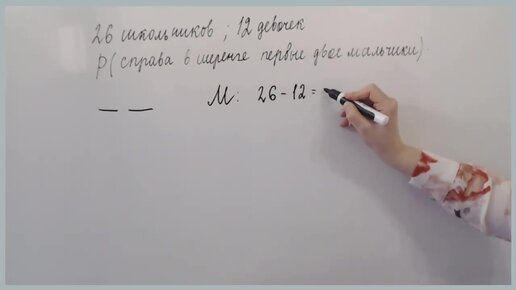 26 школьников ; 12 девочек
P(справа в шеренге первые двое мальчики)
— — М: 26 - 12 =